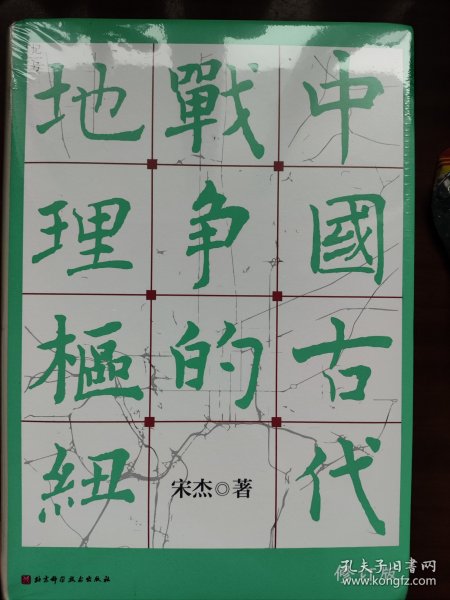 中國古代
戰争的
地理樞紐
宋杰◎著
修订版
北京科学技术出版社
孔夫子旧书网
www.kongfz.com